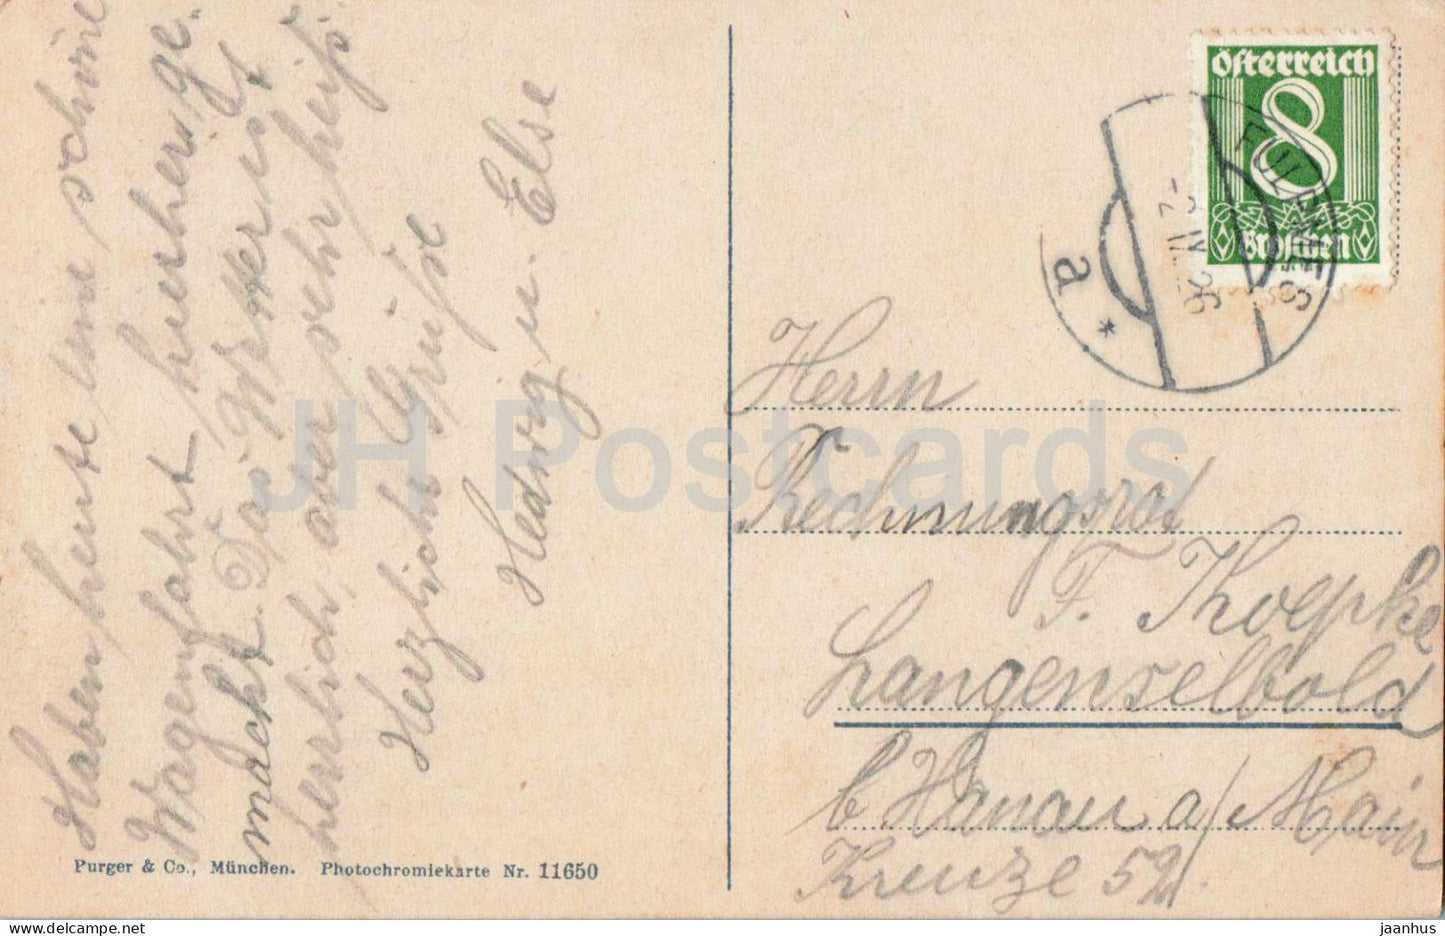 Haben heute eine schöne
Wagenfahrt hierher ge-
macht. Das Wetter ist
herrlich, aber sehr heiß.
Herzliche Grüße
Hedwig u. Else
Purger & Co., München. Photochromiekarte Nr. 11650
Österreich
8
Groschen
FULPMES
26
a
*
Herrn
Rechnungsrat
F. Koepke
Langenselbold
b Hanau a/Main
Kreuzg 52
JH Postcards
jaanhus | www.delcampe.net